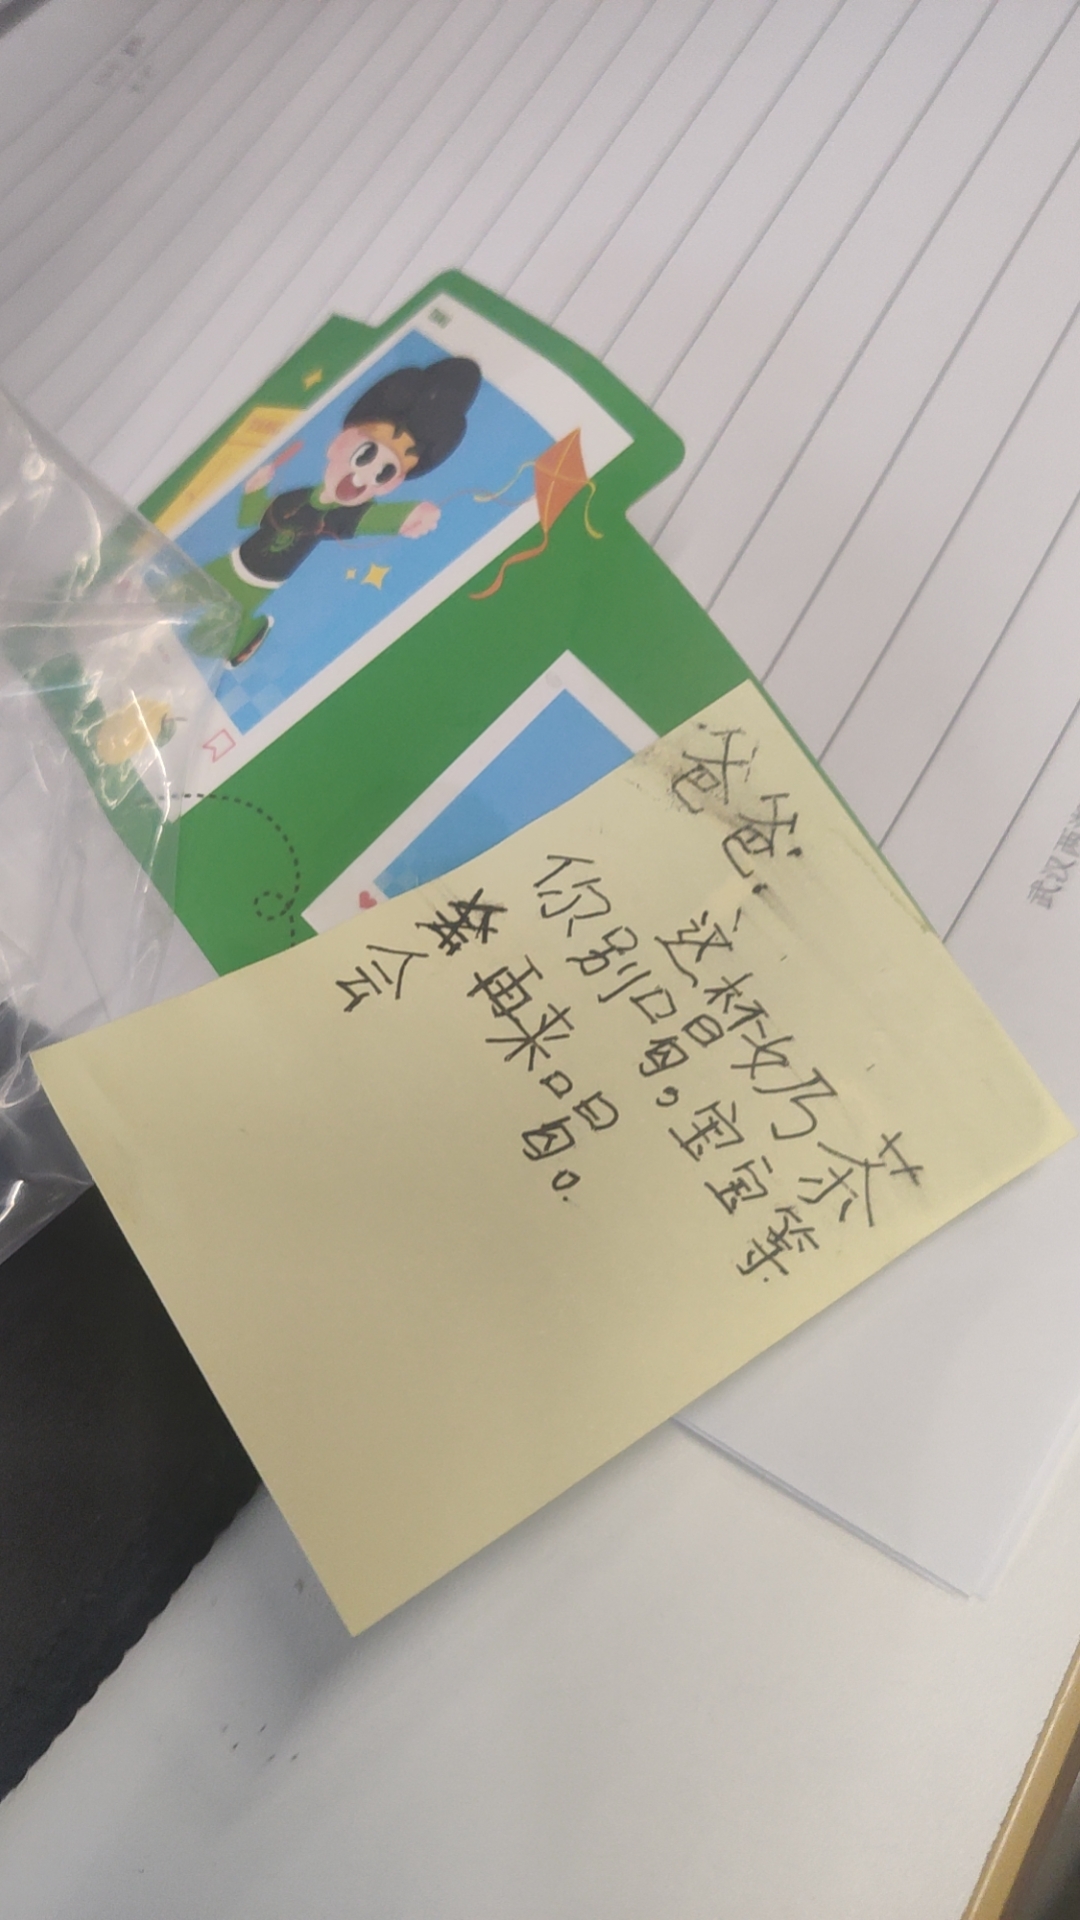 爸爸:
这杯奶茶
你别喝,宝宝等
会再来喝。
武汉两